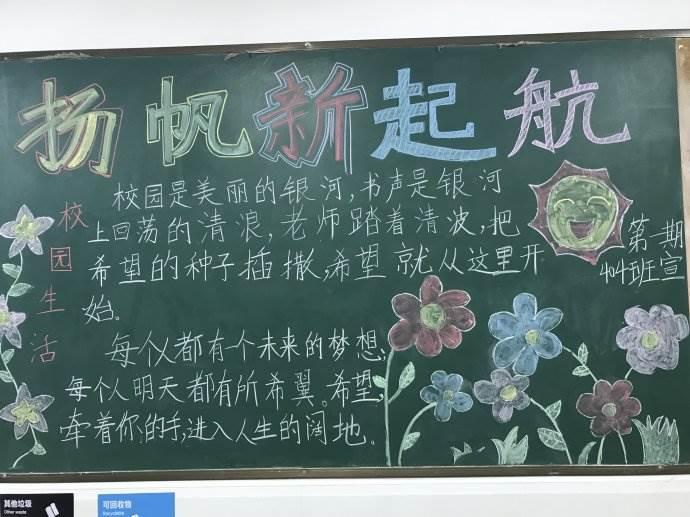 扬帆新起航
校园生活
校园是美丽的银河,书声是银河
上回荡的清浪,老师踏着清波,把
希望的种子插撒,希望就从这里开
始。
每个人都有一个未来的梦想,
每个人明天都有所希翼。希望,
牵着你的手,进入人生的阔地。
第一期
404班宣
其他垃圾
Other waste
可回收物
Recyclable